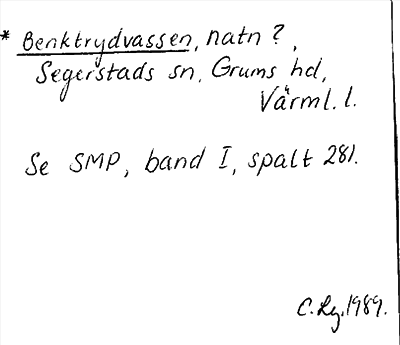 * Benktrydvassen, natn?,
Segerstads sn, Grums hd,
Värml. l.
Se SMP, band I, spalt 281.
C. Lg. 1989.